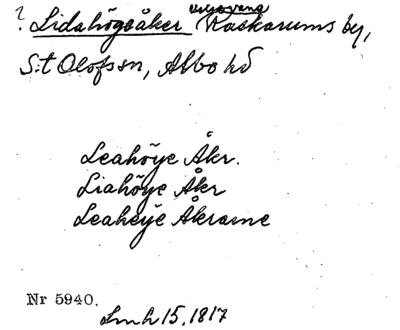 ? Lidahögsåker Raskarums by,
S:t Olofssn, Albo hd
Leahöye Åkr.
Liahöye Åkr
Leaheije Åkrarne
Nr 5940.
Lmh 15, 1817